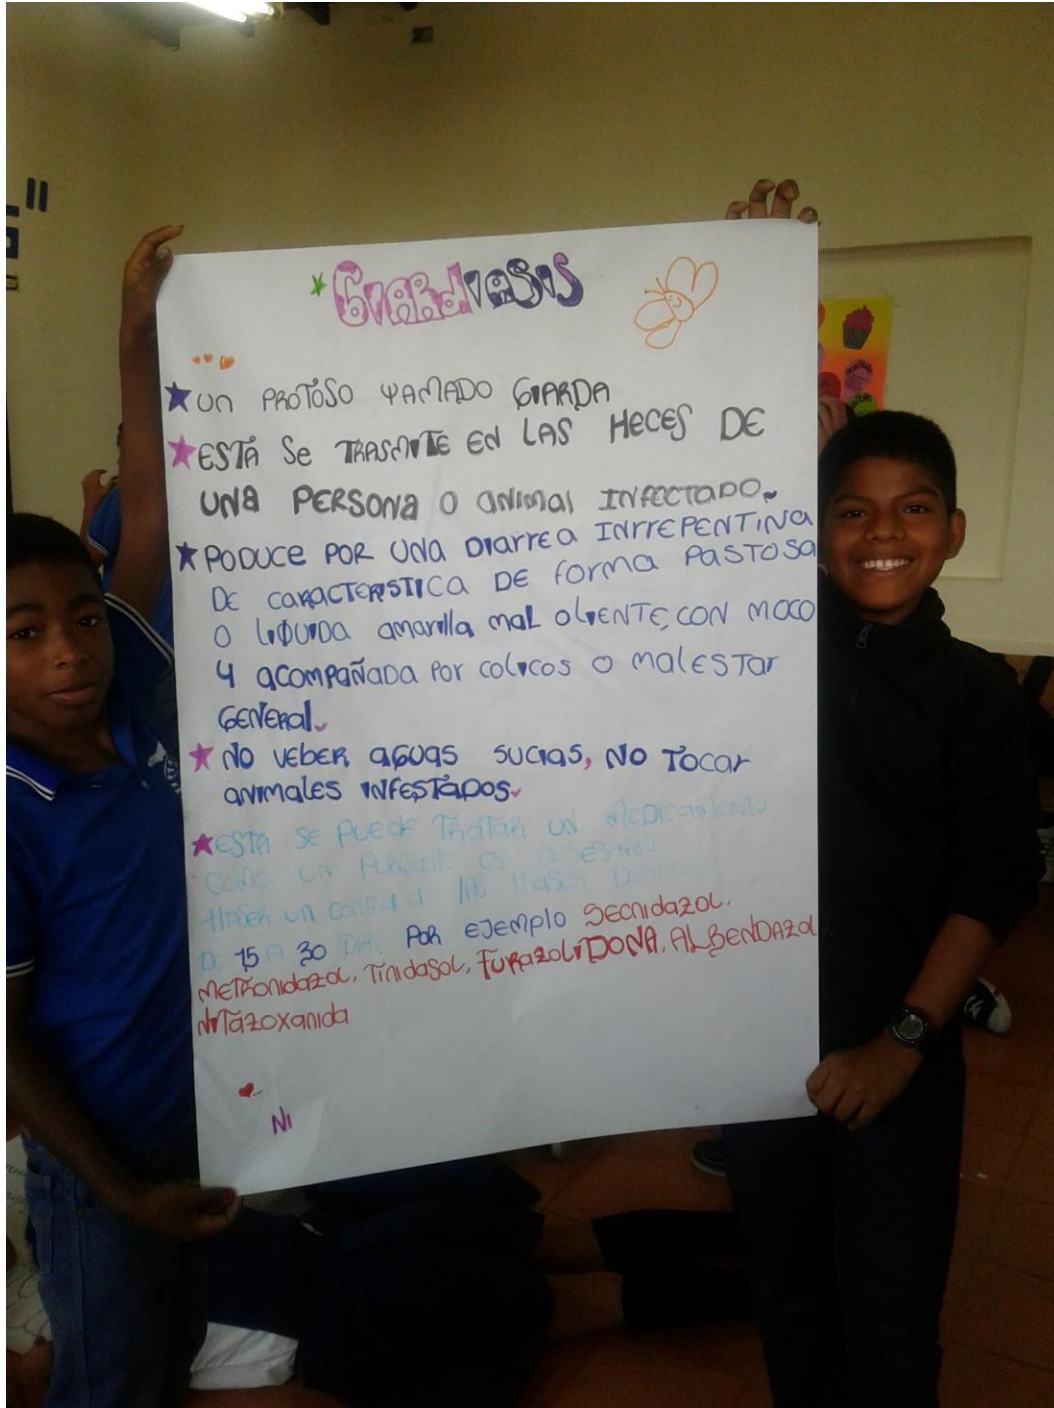 GIARdIASIS
UN PROTOSO YAMADO GIARDA
ESTÁ SE TRASMITE EN LAS HECES DE
UNA PERSONA O ANIMAL INFECTADO.
PODUCE POR UNA DIARREA INRREPENTINA
DE CARACTERSTICA DE FORMA PASTOSA
O LIQUIDA AMARILLA MAL OLIENTE, CON MOCO
Y ACOMPAÑADA POR COLICOS O MALESTAR
GENERAL.
NO VEBER AGUAS SUCIAS, NO TOCAR
ANIMALES INFESTADOS.
ESTA SE PUEDE TRATAR UN MEDICAMENTO
COMO UN PURGANTE ES
HASER UN LAS
DE 15 A 30 DIA. POR EJEMPLO SECNIDAZOL.
METRONIDAZOL, TINIDASOL, FURAZOLIDONA, ALBENDAZOL
NITAZOXANIDA
NI